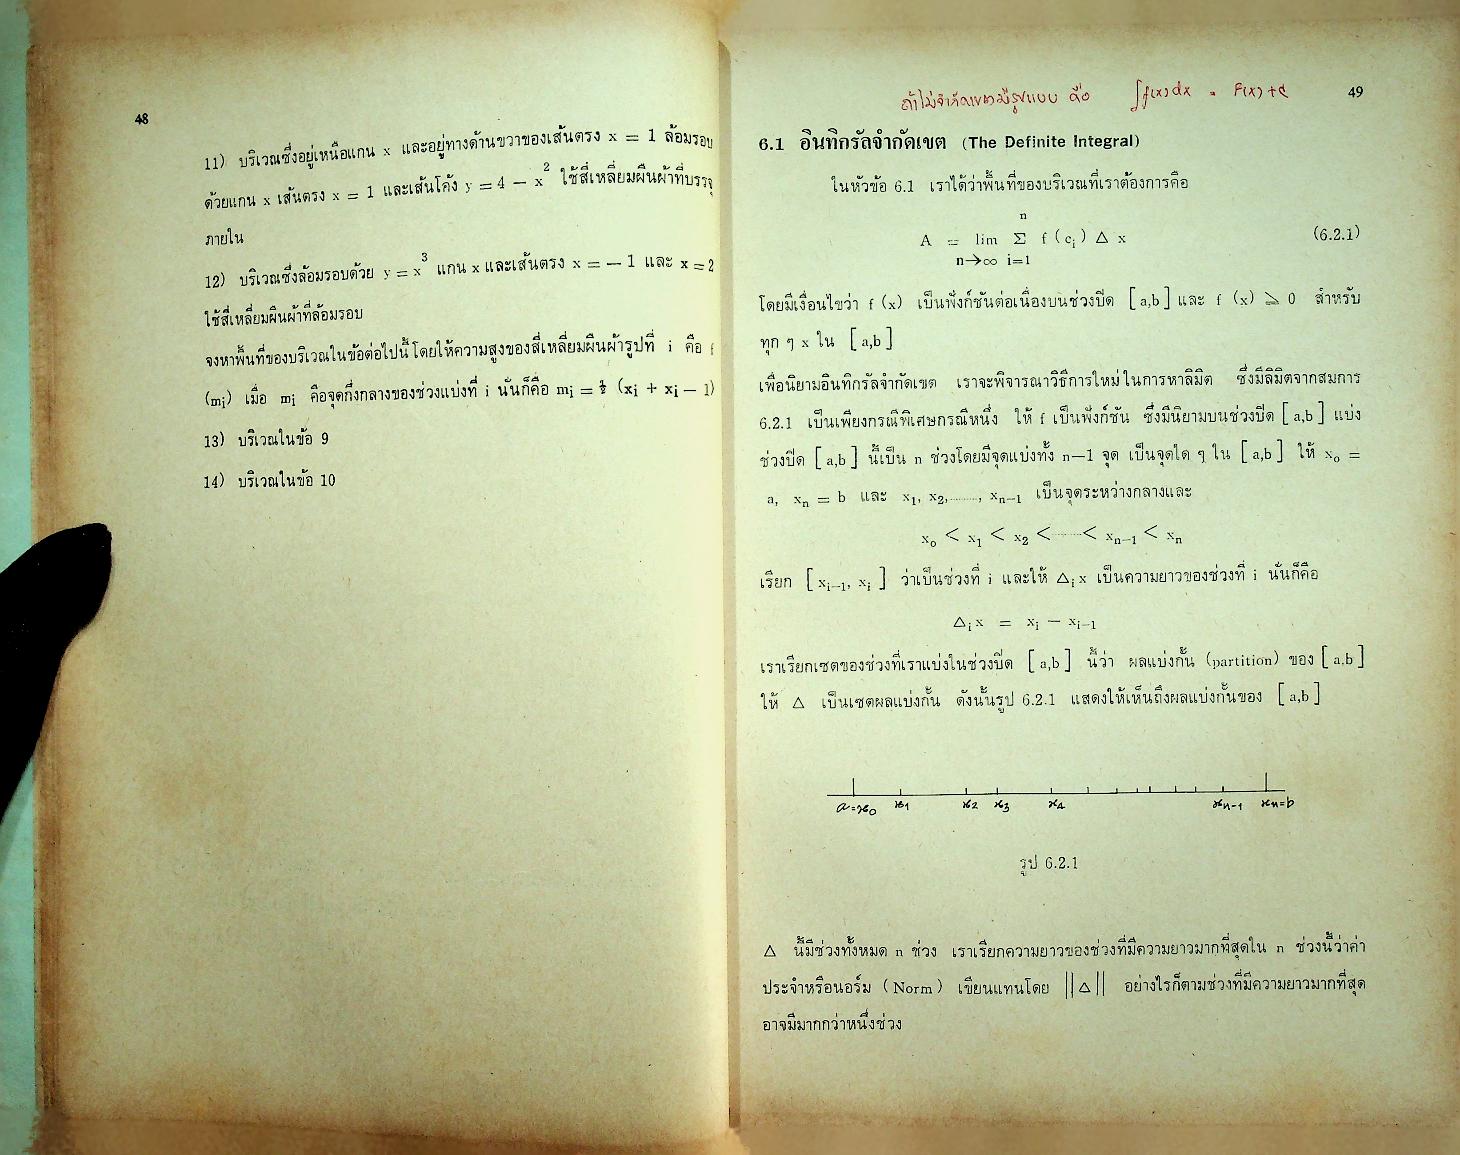 48
11) บริเวณซึ่งอยู่เหนือแกน x และอยู่ทางด้านขวาของเส้นตรง x = 1 ล้อมรอบ
ด้วยแกน x เส้นตรง x = 1 และเส้นโค้ง y = 4 − x² ใช้สี่เหลี่ยมผืนผ้าที่บรรจุ
ภายใน
12) บริเวณซึ่งล้อมรอบด้วย y = x³ แกน x และเส้นตรง x = − 1 และ x = 2
ใช้สี่เหลี่ยมผืนผ้าที่ล้อมรอบ
จงหาพื้นที่ของบริเวณในข้อต่อไปนี้ โดยให้ความสูงของสี่เหลี่ยมผืนผ้ารูปที่ i คือ f
(mᵢ) เมื่อ mᵢ คือจุดกึ่งกลางของช่วงแบ่งที่ i นั่นก็คือ mᵢ = ½ (xᵢ + xᵢ − 1)
13) บริเวณในข้อ 9
14) บริเวณในข้อ 10
ถ้าไม่จำกัดเขตมีรูปแบบ คือ ∫f(x)dx = F(x)+c
49
6.1 อินทิกรัลจำกัดเขต (The Definite Integral)
ในหัวข้อ 6.1 เราได้ว่าพื้นที่ของบริเวณที่เราต้องการคือ
n
A = lim Σ f (cᵢ) △ x (6.2.1)
n→∞ i=1
โดยมีเงื่อนไขว่า f (x) เป็นฟังก์ชันต่อเนื่องบนช่วงปิด [a,b] และ f (x) ⩾ 0 สำหรับ
ทุก ๆ x ใน [a,b]
เพื่อนิยามอินทิกรัลจำกัดเขต เราจะพิจารณาวิธีการใหม่ในการหาลิมิต ซึ่งมีลิมิตจากสมการ
6.2.1 เป็นเพียงกรณีพิเศษกรณีหนึ่ง ให้ f เป็นฟังก์ชัน ซึ่งมีนิยามบนช่วงปิด [a,b] แบ่ง
ช่วงปิด [a,b] นี้เป็น n ช่วงโดยมีจุดแบ่งทั้ง n−1 จุด เป็นจุดใด ๆ ใน [a,b] ให้ x₀ =
a, xₙ = b และ x₁, x₂,........, xₙ₋₁ เป็นจุดระหว่างกลางและ
x₀ < x₁ < x₂ <......< xₙ₋₁ < xₙ
เรียก [xᵢ₋₁, xᵢ] ว่าเป็นช่วงที่ i และให้ △ᵢx เป็นความยาวของช่วงที่ i นั่นก็คือ
△ᵢx = xᵢ − xᵢ₋₁
เราเรียกเซตของช่วงที่เราแบ่งในช่วงปิด [a,b] นี้ว่า ผลแบ่งกั้น (partition) ของ [a,b]
ให้ △ เป็นเซตผลแบ่งกั้น ดังนั้นรูป 6.2.1 แสดงให้เห็นถึงผลแบ่งกั้นของ [a,b]
a=x₀ x₁ x₂ x₃ x₄ xₙ₋₁ xₙ=b
รูป 6.2.1
△ นี้มีช่วงทั้งหมด n ช่วง เราเรียกความยาวของช่วงที่มีความยาวมากที่สุดใน n ช่วงนี้ว่าค่า
ประจำหรือนอร์ม (Norm) เขียนแทนโดย ||△|| อย่างไรก็ตามช่วงที่มีความยาวมากที่สุด
อาจมีมากกว่าหนึ่งช่วง